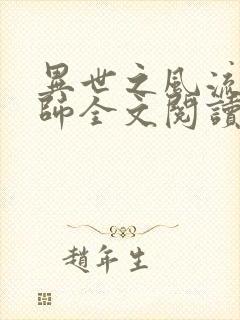 異世之風流
師全文閱讀
趙年生